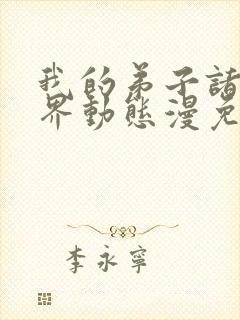 我的弟子諸
界動態漫免
李永寧